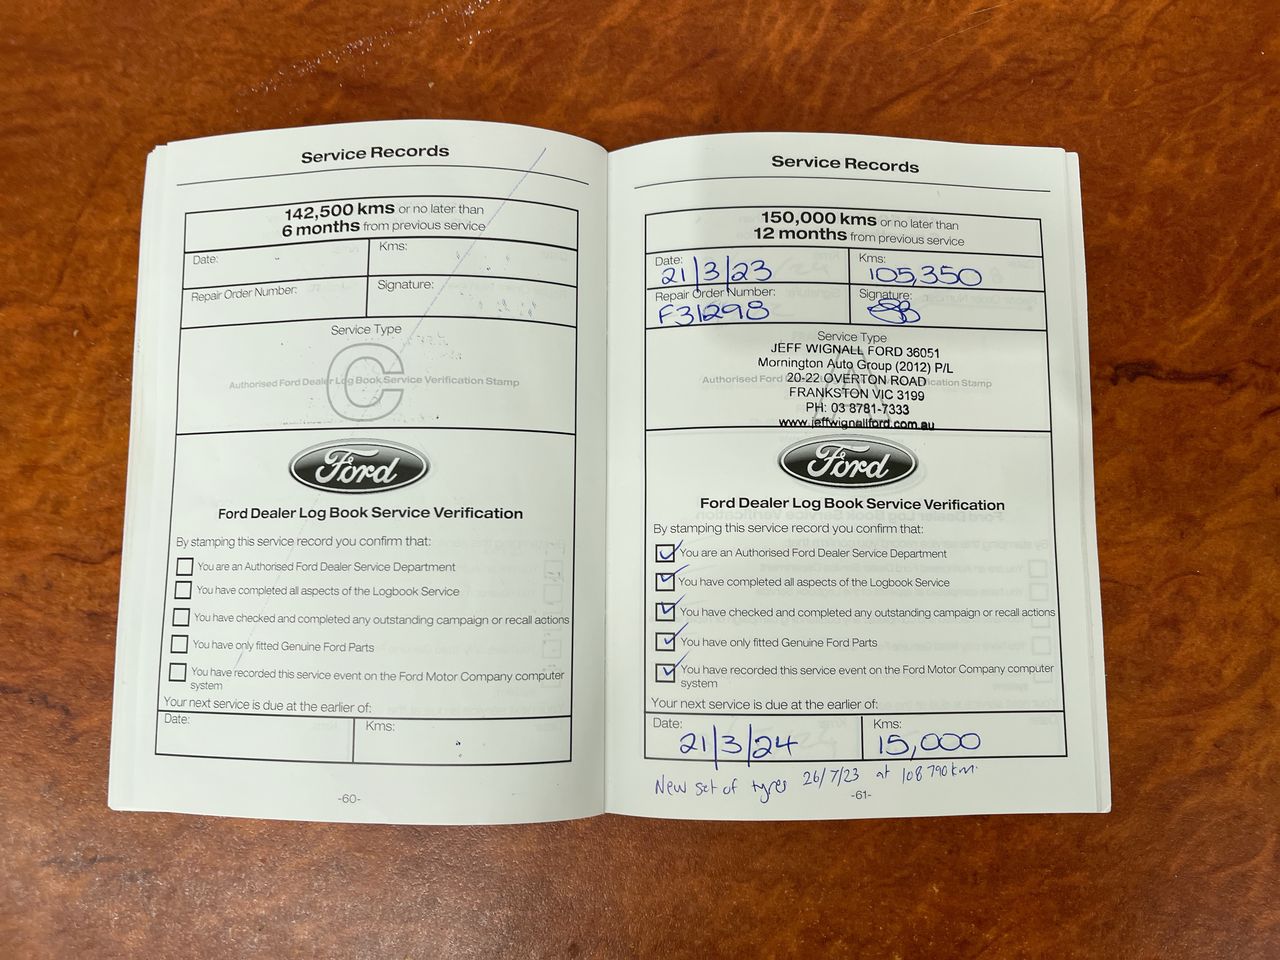 Service Records
142,500 kms or no later than
6 months from previous service
Date:
Kms:
Repair Order Number:
Signature:
Service Type
C
Authorised Ford Dealer Log Book Service Verification Stamp
Ford
Ford Dealer Log Book Service Verification
By stamping this service record you confirm that:
You are an Authorised Ford Dealer Service Department
You have completed all aspects of the Logbook Service
You have checked and completed any outstanding campaign or recall actions
You have only fitted Genuine Ford Parts
You have recorded this service event on the Ford Motor Company computer
system
Your next service is due at the earlier of:
Date:
Kms:
-60-
Service Records
150,000 kms or no later than
12 months from previous service
Date:
21/3/23
Kms:
105,350
Repair Order Number:
F31298
Signature:
Service Type
JEFF WIGNALL FORD 36051
Mornington Auto Group (2012) P/L
Authorised Ford
20-22 OVERTON ROAD
fication Stamp
FRANKSTON VIC 3199
PH: 03 8781-7333
www.jeffwignallford.com.au
Ford
Ford Dealer Log Book Service Verification
By stamping this service record you confirm that:
You are an Authorised Ford Dealer Service Department
You have completed all aspects of the Logbook Service
You have checked and completed any outstanding campaign or recall actions
You have only fitted Genuine Ford Parts
You have recorded this service event on the Ford Motor Company computer
system
Your next service is due at the earlier of:
Date:
21/3/24
Kms:
15,000
New set of tyres 26/7/23 at 108 790 km.
-61-